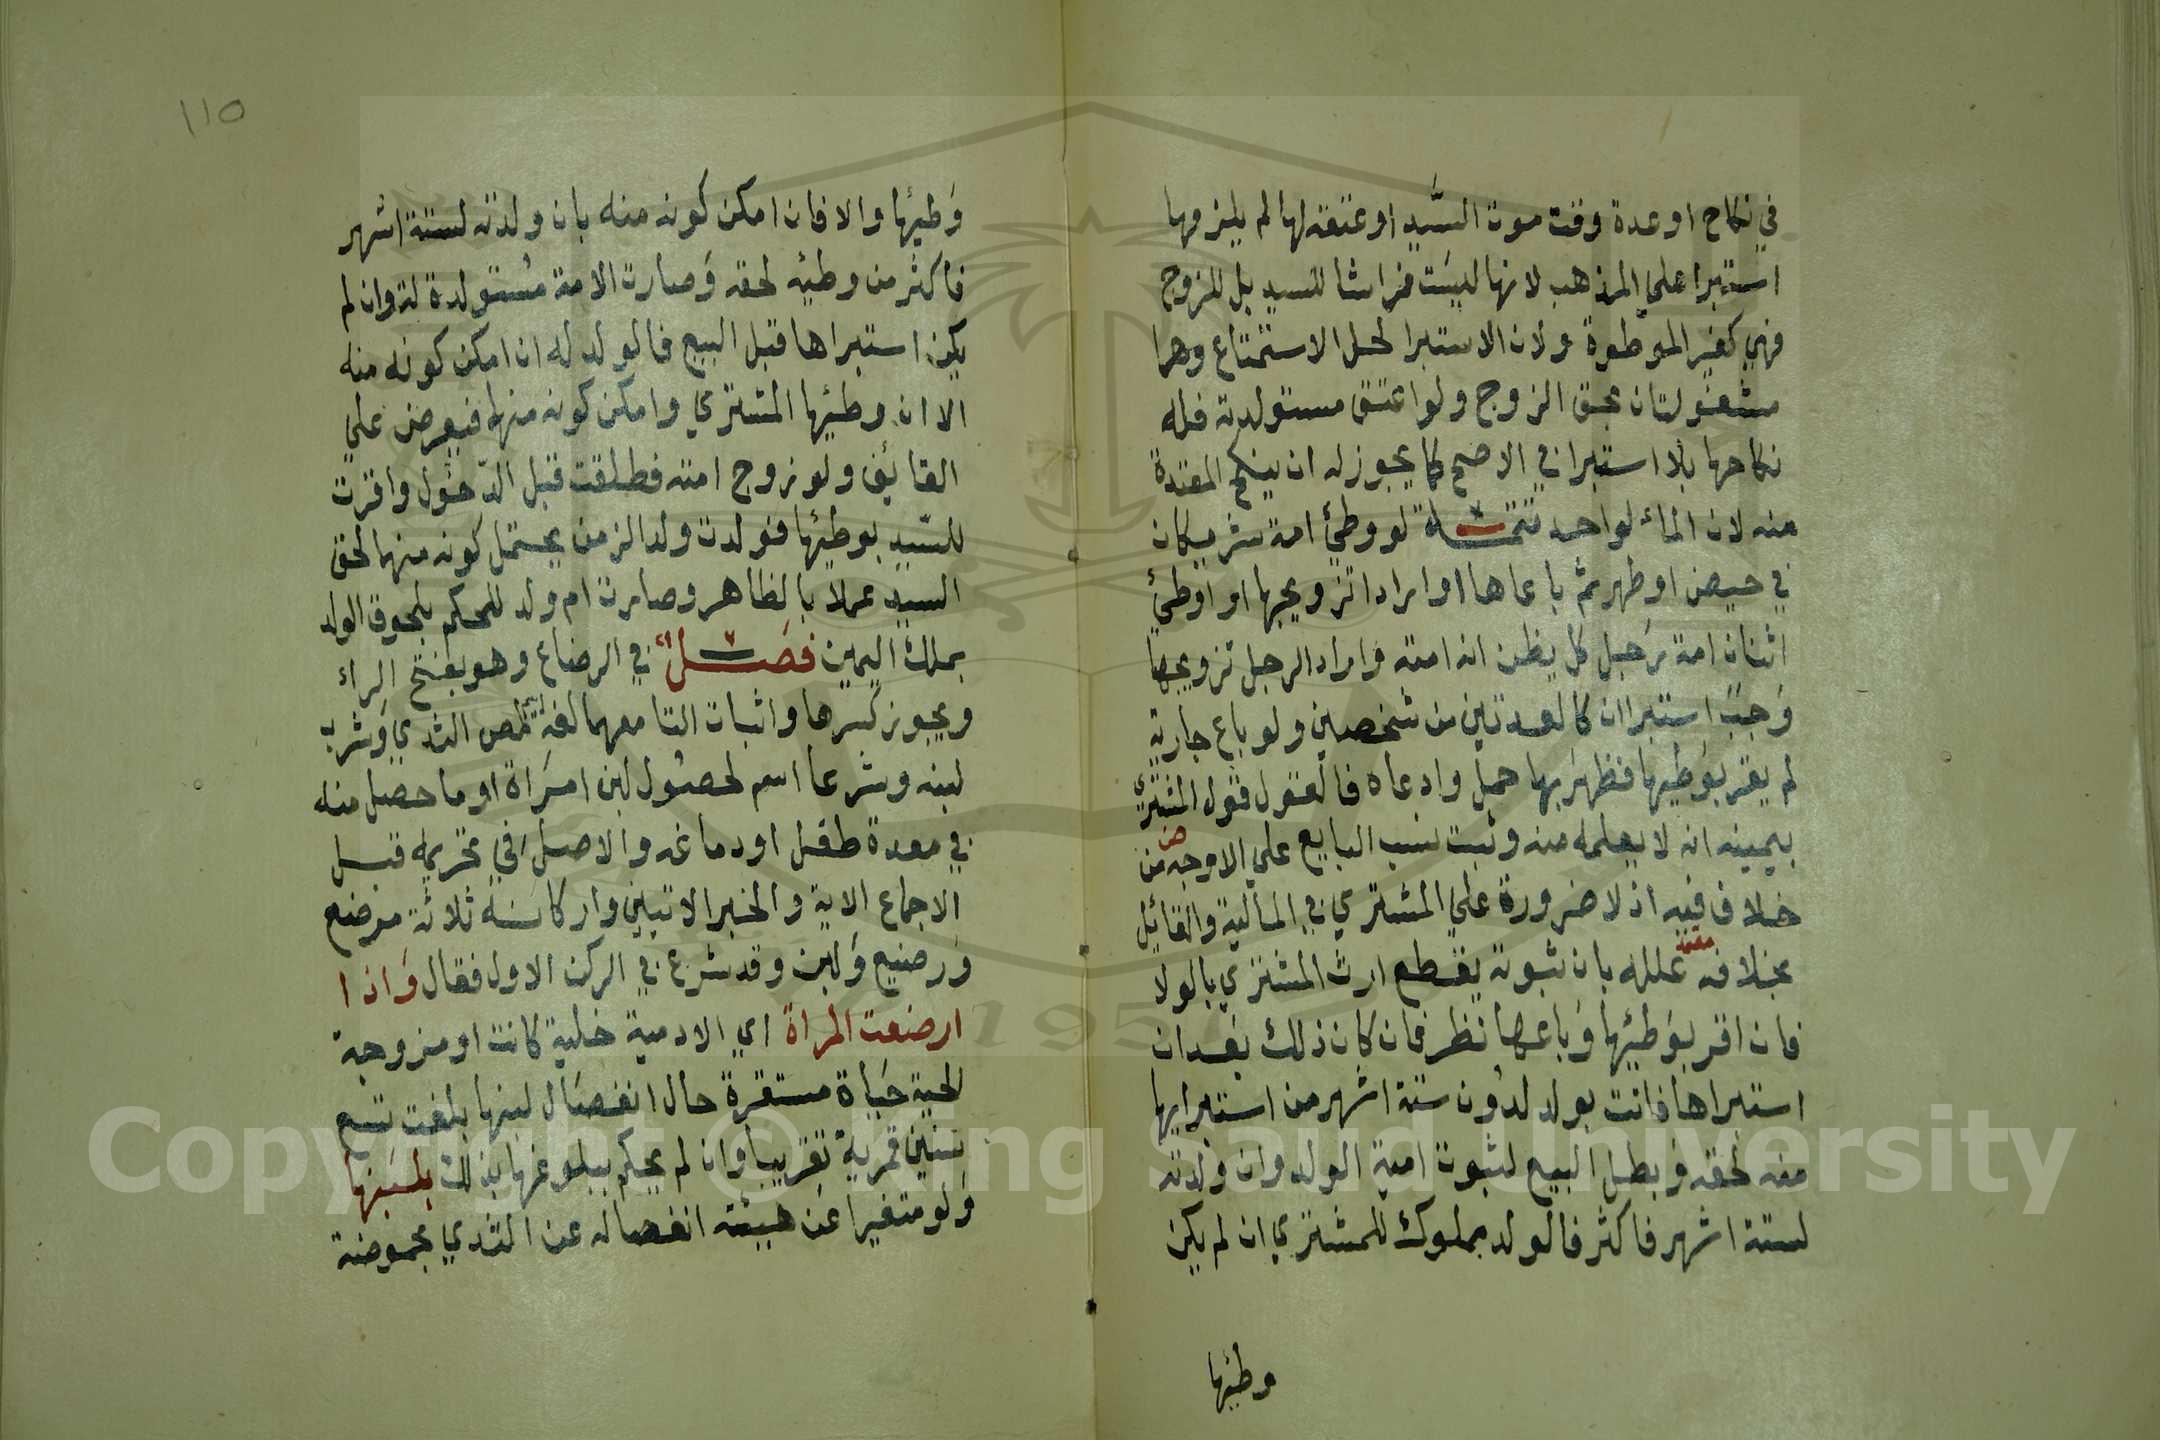 في نكاح او عدة وقت موت السَّيد او عتقه لها لم يلزمها
استبرا علي المذهب لانها ليست فراشا للسيد بل للزوج
فهي كغير الموطوة ولان الاستبرا لحل الاستمتاع وهما
مشغولتان بحق الزوج ولو اعتق مستولدته فله
نكاحها بلا استبرا في الاصح كما يجوز له ان ينكح المعتدة
منه لان الماء لواحد تتمة لو وطئ امة شريكان
في حيض او طهر ثم باعاها او ارادا تزويجها او وطئ
اثنان امة رجل كل يظن انه امته واراد الرجل تزويجها
وَجَبَ استبراان كالعدتين من شخصين ولو باع جارية
لم يقر بوَطيها فظهَر بها حمل وادعاه فالقول قول المشتري
بيمينه انه لا يعلمه منه وثبت نسب البايع علي الاوجه من
ص
خلاف فيه اذ لا ضرورة علي المشتري في المالية والقائل
بخلافه علله بان ثبوته يقطع ارث المشتري بالولا
فان اقر بوَطيها وَباعها نظر فان كان ذلك بَعد ان
استبراها فاتت بولد لدون ستة اشهر من استبرايها
منه لحقه وبطل البيع لثبوت امية الولد وان ولدته
لستة اشهر فاكثر فالولد مملوك للمشتري ان لم يكن
وطئها
١١٥
وَطيها والا فان امكن كونه منه بان ولدته لستة اشهر
فاكثر من وطيه لحقه وَصارت الامة مُستولدة له وان لم
يكن استبراها قبل البيع فالولد له ان امكن كونه منه
الا ان وطئها المشتري وامكن كونه منهما فيعرض علي
القائف ولو زوج امته فطلقت قبل الدّخول واقرت
للسّيد بوطئها فولدت ولدا لزمن يحتمل كونه منهما لحق
السيد عملا بالظاهر وصارت ام ولد للحكم بلحوق الولد
بملك اليمين فصَل في الرضاع وهو بفتح الراء
ويجوز كسرها واثبات التا معهما لغة لمص الثدي وَشرب
لبنه وشرعا اسم لحصُول لبن امرَاة او ما حصل منه
في معدة طفل او دماغه والاصل في تحريمه قبل
الاجماع الاية والخبر الاتيين واركانه ثلاثة مرضع
وَرضيع وَلبن وقد شرع في الركن الاول فقال وَاذا
ارضعت المراة اي الادمية خلية كانت او مزوجة
الحية حَياة مستقرة حال انفصَال لبنها بلغت تسع
سنين قمرية تقريبا وان لم يحكم ببلوغها بذلك بلبَنها
وَلو متغيرا عَن هيئته انفصاله عن الثدي بحموضة